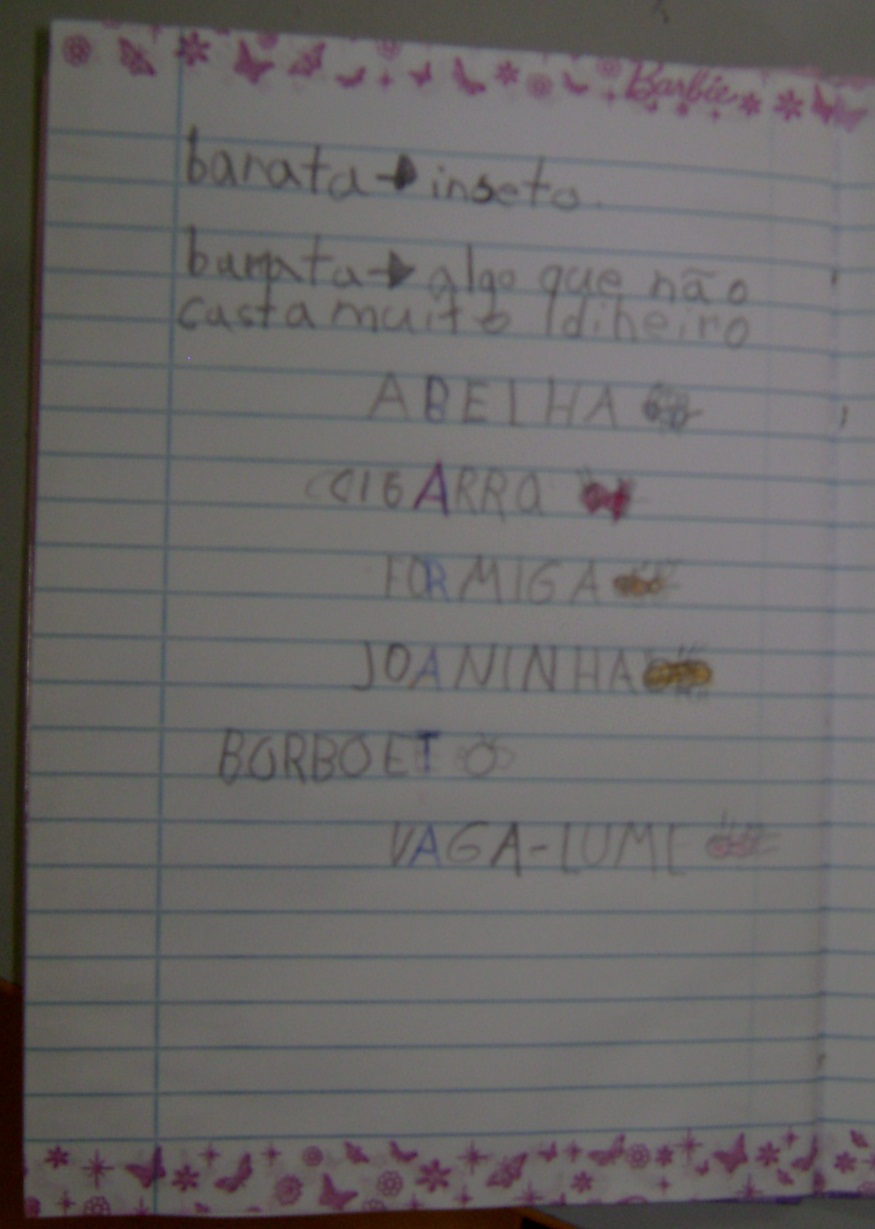 Barbie
barata → inseto
barata → algo que não
custa muito dinheiro
ABELHA
CIGARRA
FORMIGA
JOANINHA
BORBOET
VAGA-LUME